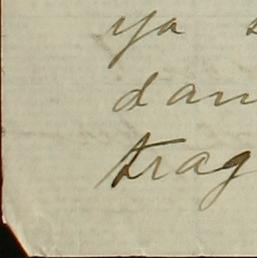 ya
dan
trag